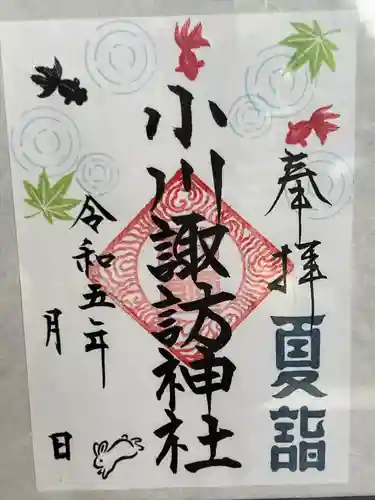 奉拝
夏詣
小川諏訪神社
令和五年
月
日